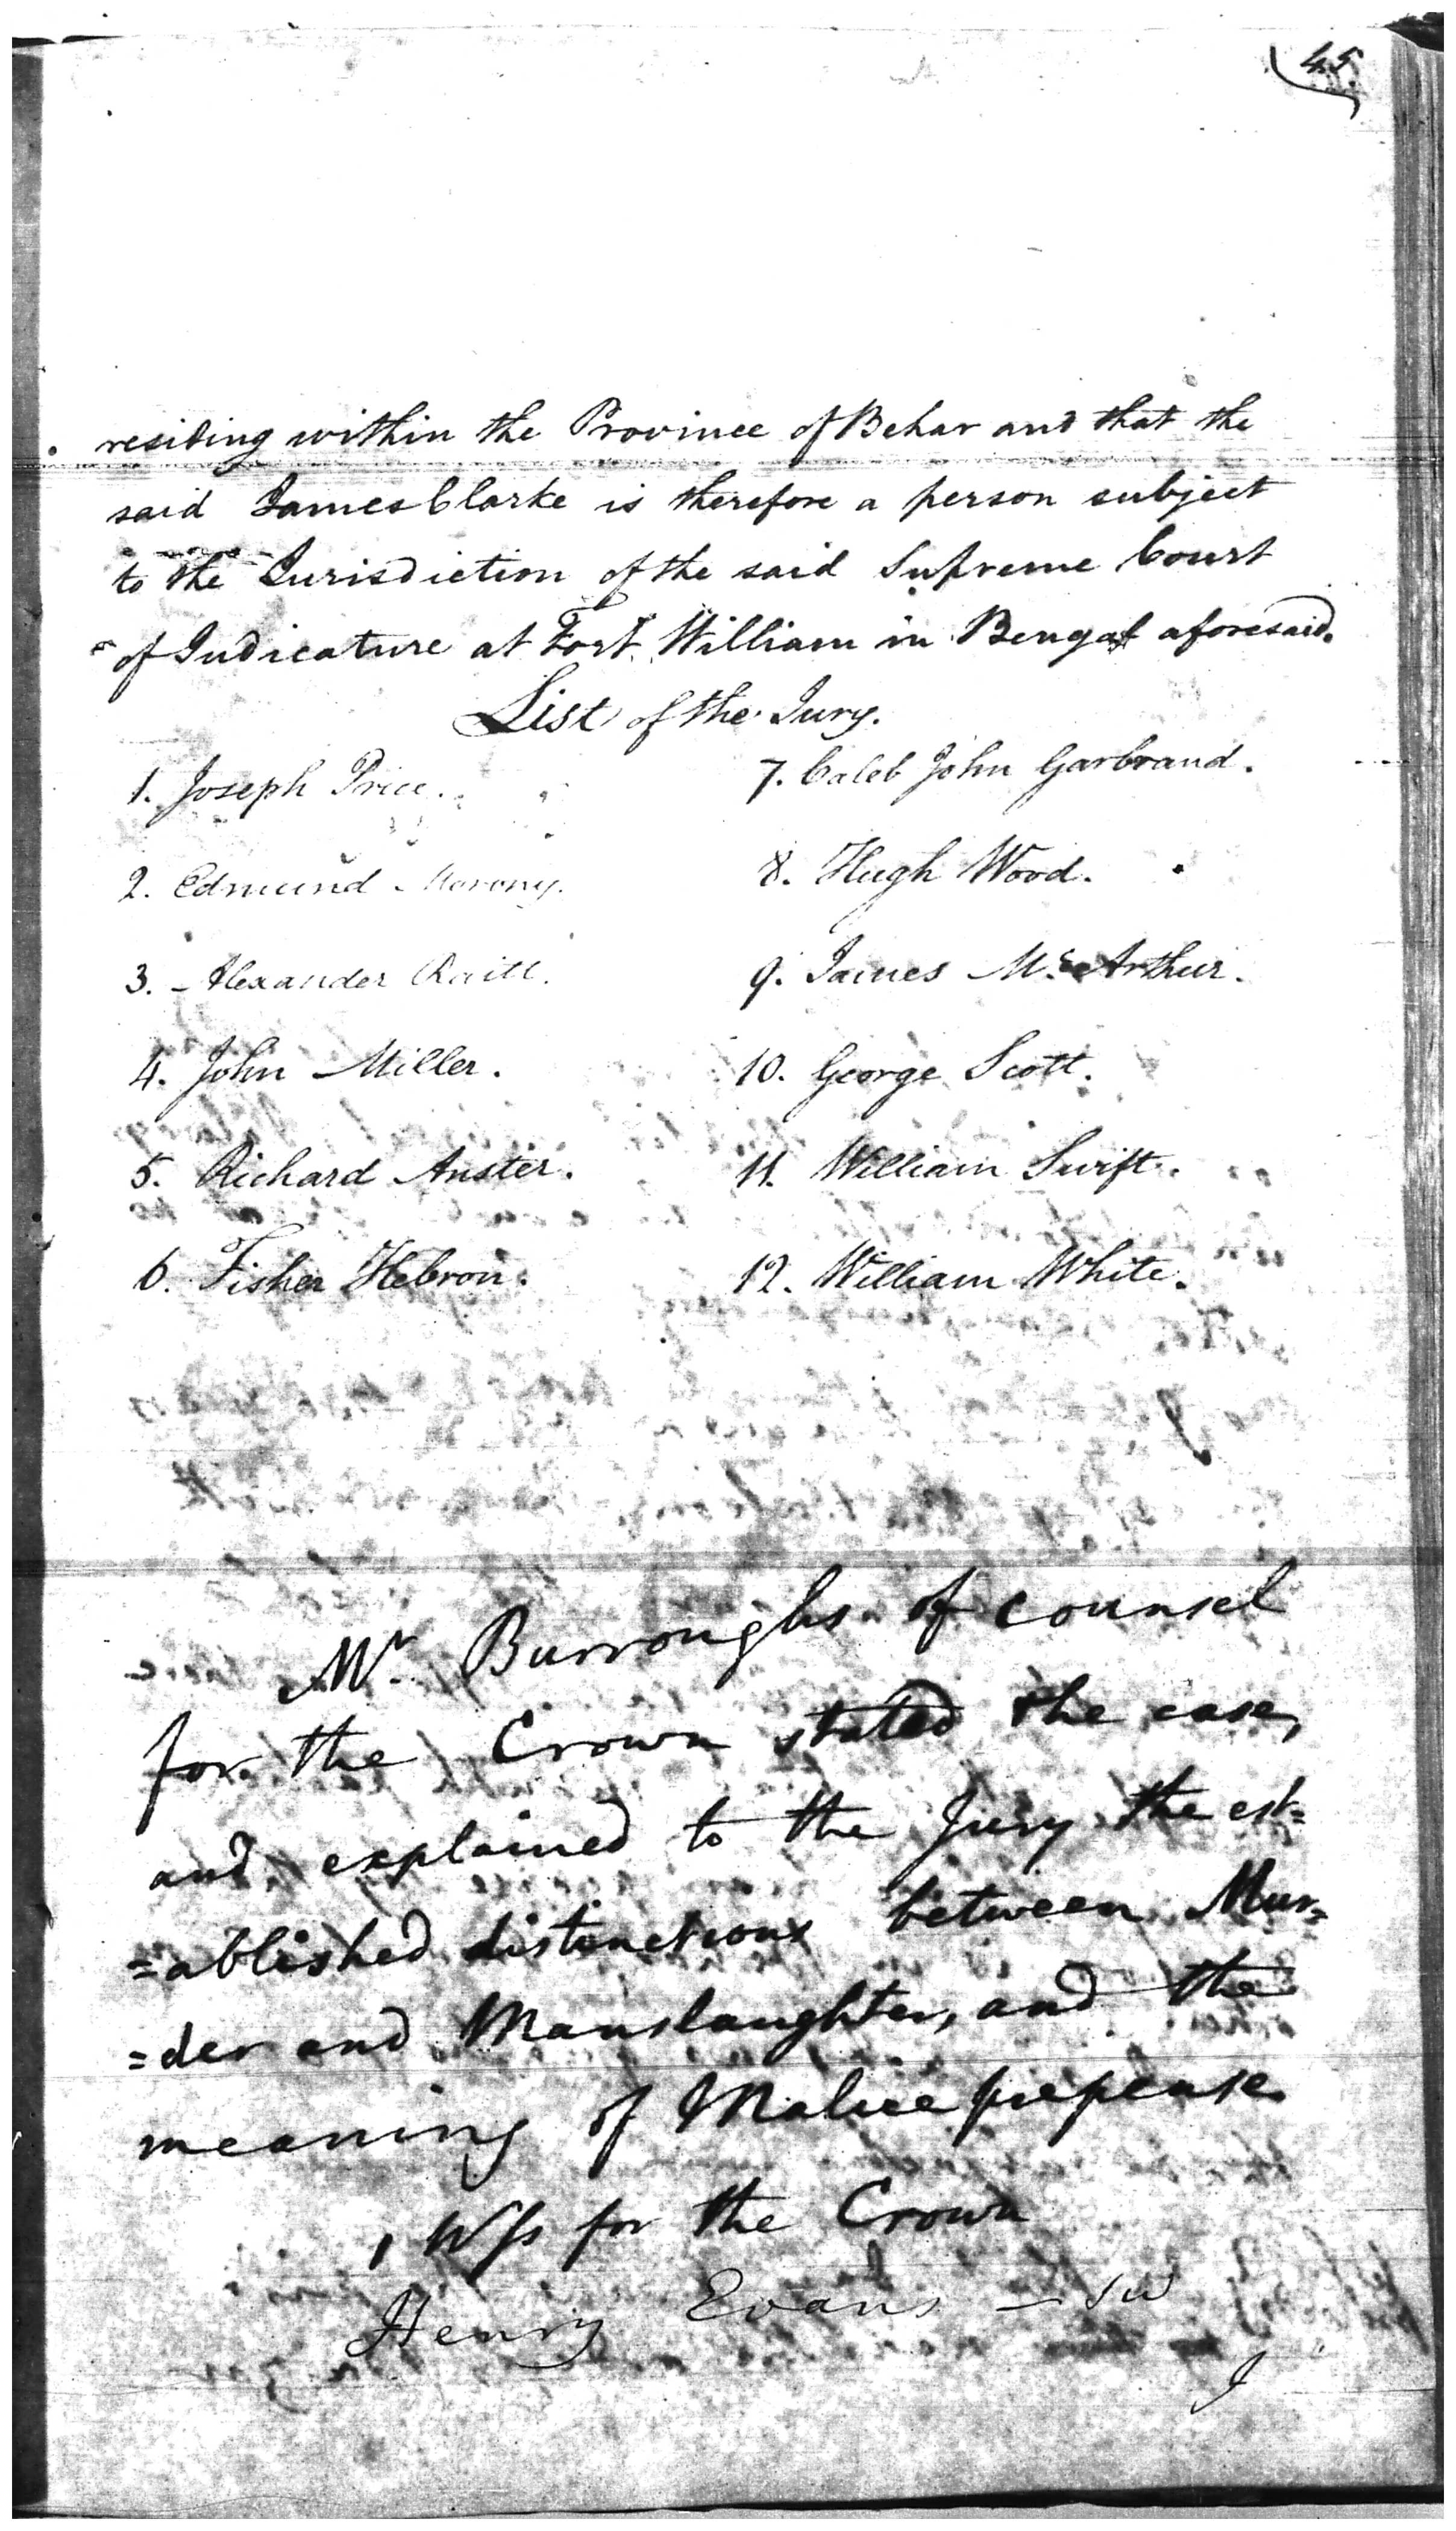 45
residing within the Province of Behar and that the
said James Clarke is therefore a person subject
to the Jurisdiction of the said Supreme Court
of Judicature at Fort William in Bengal aforesaid.
List of the Jury.
1. Joseph Price.
2. Edmund Morony.
3. Alexander Raitt.
4. John Miller.
5. Richard Anster.
6. Fisher Hebron.
7. Caleb John Garbrand.
8. Hugh Wood.
9. James Mc. Arthur.
10. George Scott.
11. William Swift.
12. William White.
Mr. Burroughs of counsel
for the Crown stated the case,
and explained to the Jury the est=
=ablished distinctions between Mur=
=der and Manslaughter, and the
meaning of Malice prepense
1 Wss for the Crown
Henry Evans — sw
I